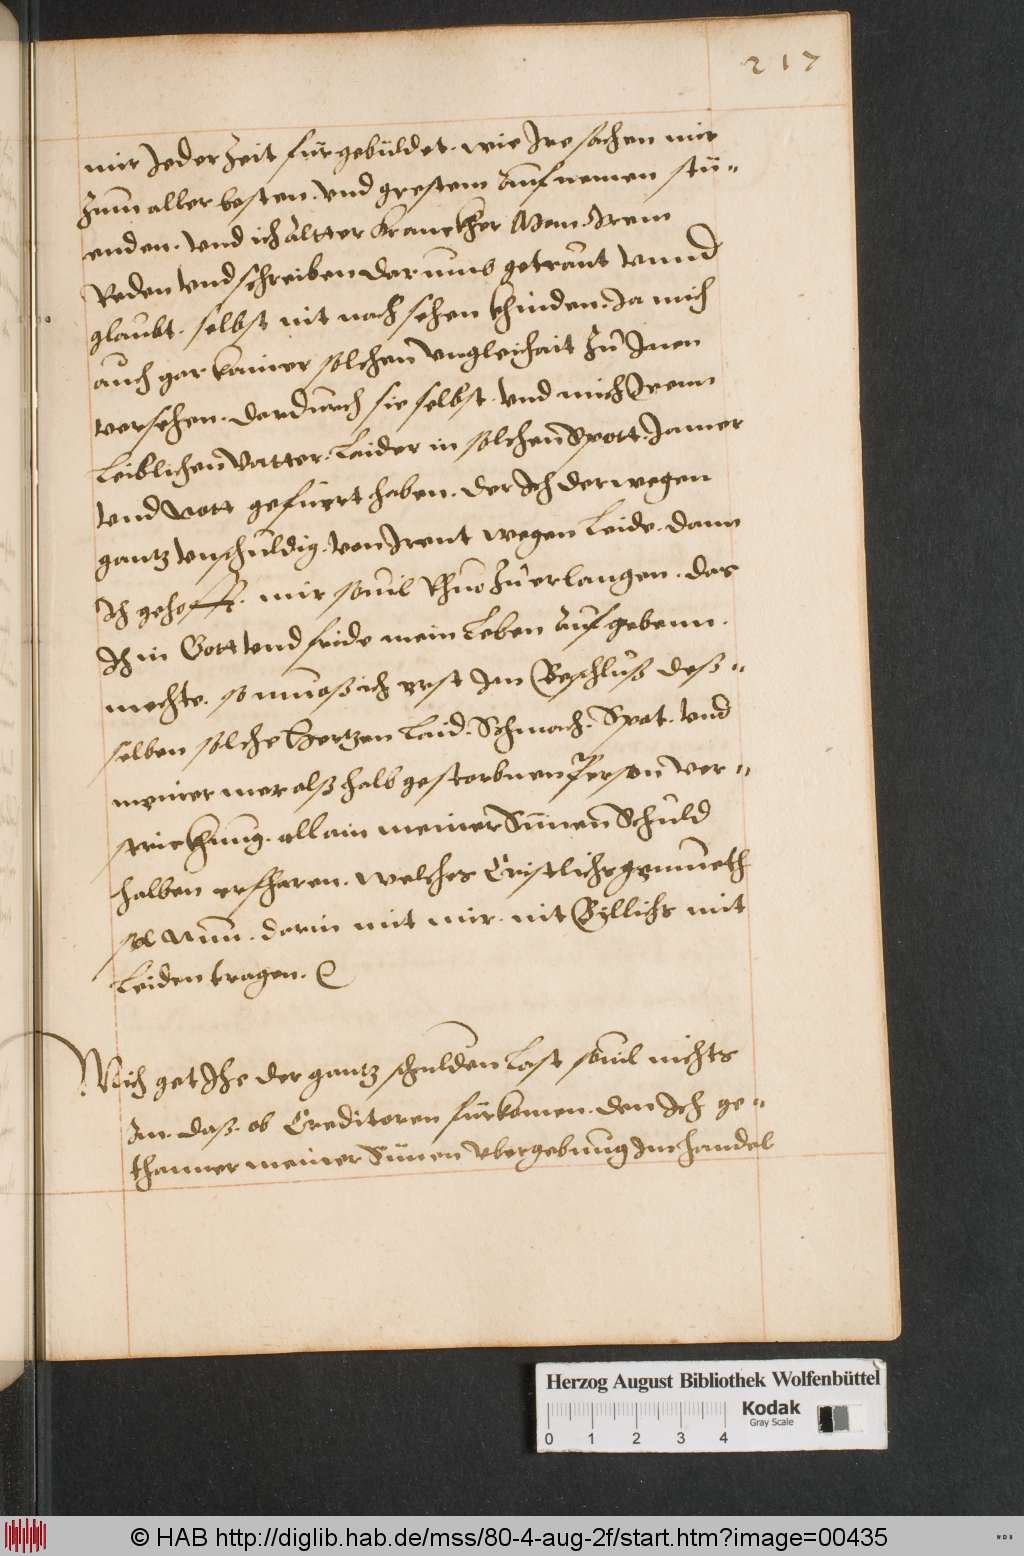 217
mir Jeder Zeit fürgebüldet. wie Jre sachen mir
Zum aller besten. vnd grestem Aufnemen stü-
enden. vnd ich altter Kranckher Man. Jrem
Reden vnd schreiben darumb getraut vnnd
glaubt. selbst nit nach sehen khinden. Ja mich
auch gar kainer solchen vngleichait Zu Jnen
versehen. dardurch sie selbst. vnd mich Jrenn
Leiblichen Vatter. Laider in solchen Spott. Jamer
vnd Nott gefüert haben. der Jch derwegen
gantz vnschuldig. von Jrent wegen Leide. dann
Jch gehofft. mir souil Rhuo Zu erlangen. das
Jch in Gott vnd fride mein Leben Aufgebenn.
mechte. so muoß ich erst Jm Beschluß deß-
selben solche Hertzen Laid. Schmach. Spot. vnd
meiner mer alß halb gestorbnen Person ver-
strickhung. allain meiner Sünen Schuld
halben erfharen. welches Cristlichs gemüeth
sol Nun. darin mit mir. nit Byllichs mit
Leiden tragen.
Mich get Jhe der gantz schulden Last souil nichts
An. daß. ob Creditoren fürkomen. den Jch ge-
thanner meiner Sünen vbergebung Jm handel
Herzog August Bibliothek Wolfenbüttel
Kodak
Gray Scale
0 1 2 3 4
© HAB http://diglib.hab.de/mss/80-4-aug-2f/start.htm?image=00435